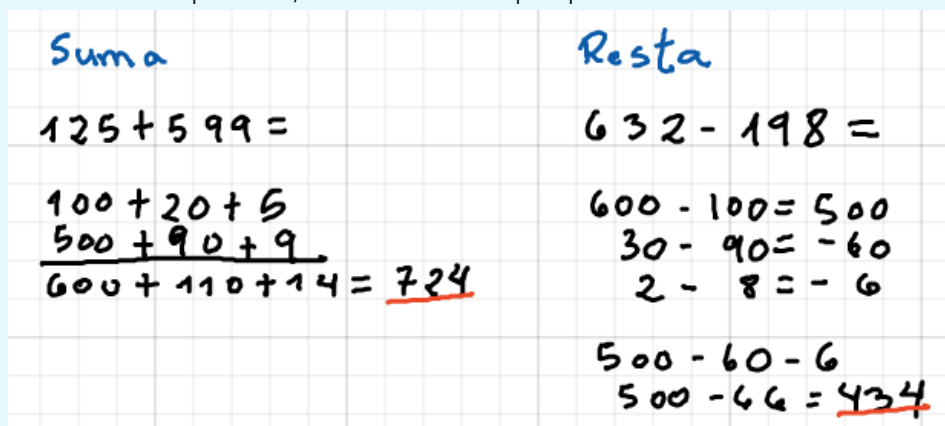 Suma
125+599=
100+20+5
500+90+9
600+110+14=724
Resta
632-198=
600-100=500
30-90=-60
2-8=-6
500-60-6
500-66=434